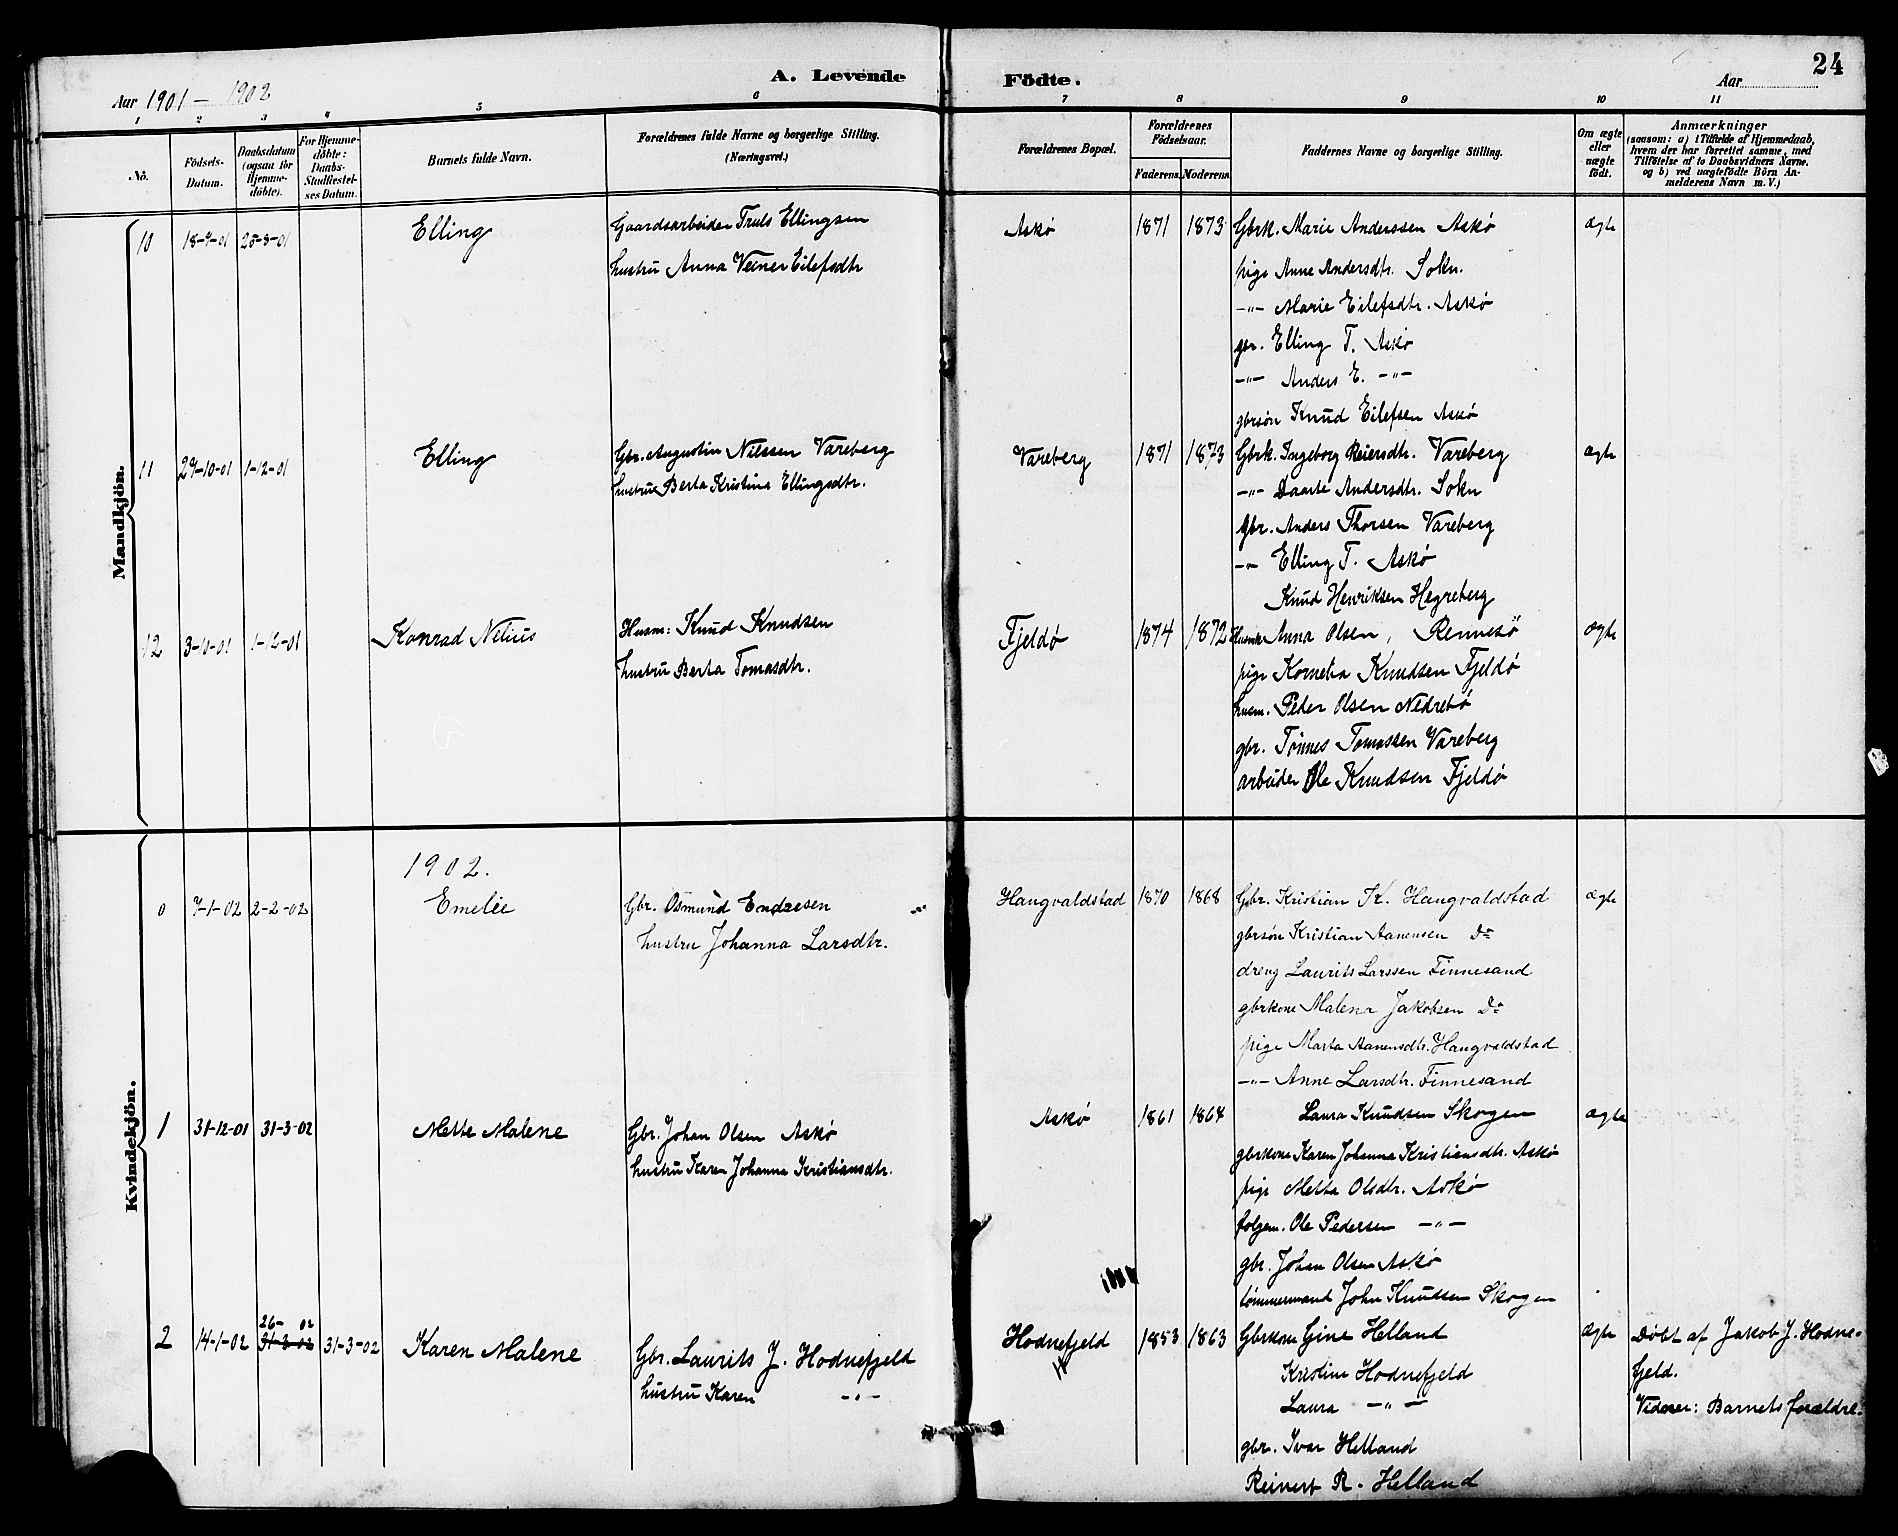 24
A. Levende Födte.
Aar 1901 - 1902
Aar
1 2 3 4 5 6 7 8 9 10 11
No.
Födsels-Datum.
Daabsdatum (ogsaa for Hjemme-döbte).
For Hjemme-döbte: Daabs-Stadfæstel-ses Datum.
Barnets fulde Navn.
Forældrenes fulde Navne og borgerlige Stilling. (Næringsvei.)
Forældrenes Bopæl.
Forældrenes Födselsaar.
Faderens. Moderens.
Faddernes Navne og borgerlige Stilling.
Om ægte eller uægte födt.
Anmærkninger
(saasom: a) i Tilfælde af Hjemmedaab,
hvem der har forrettet samme, med
Tilföielse af to Daabsvidners Navne.
og b) ved uægtefödte Börn An-
melderens Navn m. V.)
Mandkjön.
10 18-7-01 25-8-01 Elling Gaardsarbeider Truls Ellingsen Askø 1871 1873 Gbrk. Marie Anderssen Askø ægte
hustru Anna Eilefsdtr pige Anne Andersdtr. Sokn.
-"- Marie Eilefsdtr. Askø
gbr. Elling T. Askø
-"- Anders E. -"-
gbrsøn Knud Eilefsen Askø
11 29-10-01 1-12-01 Elling Gbr. Augustin Nilssen Vareberg Vareberg 1871 1873 Gbrk. Ingeborg Reiersdtr. Vareberg ægte
hustru Berta Kristina Ellingsdtr. -"- Daarte Andersdtr. Sokn
Gbr. Anders Thorsen Vareberg
-"- Elling T. Askø
Knud Henriksen Hegreberg
12 3-11-01 1-12-01 Konrad Nelius Husm: Knud Knudsen Fjeldø 1874 1872 Anna Olsen, Rennesö ægte
hustru Berta Tomasdtr. pige Kornelia Knudsen Fjeldø
husm. Peder Olsen Nedrebø
gbr. Tønnes Tomassen Vareberg
arbeider Ole Knudsen Fjeldø
Kvindekjön.
1902.
0 7-1-02 2-2-02 Emelie Gbr. Osmund Endresen Hangvaldstad 1870 1868 Gbr. Kristian K. Hangvaldstad ægte
hustru Johanna Larsdtr. gbrsøn Kristian Aanensen Do
dreng Laurits Larssen Finnesand
gbrkone Malena Jakobsen Do
pige Marta Aanensdtr. Hangvaldstad
-"- Anne Larsdtr. Finnesand
1 31-12-01 31-3-02 Mette Malene Gbr. Johan Olsen Askø Askø 1861 1864 Laura Knudsen Skogen ægte
hustru Karen Johanna Kristiansdtr. gbrkone Karen Johanna Kristiansdtr. Askø
pige Metta Olsdtr. Askø
folgem. Ole Pedersen -"-
gbr. Johan Olsen Askø
tømmermand John Knudsen Skogen
26- 02
2 14-1-02 31-3-02 31-3-02 Karen Malene Gbr. Laurits J. Hodnefjeld Hodnefjeld 1853 1863 Gbrkone Gine Helland ægte Døbt af Jakob J. Hodne-
hustru Karen -"- Kristine Hodnefjeld fjeld.
Laura -"- Vidner: Barnets forældre.
gbr. Ivar Helland
Reinert R. Helland